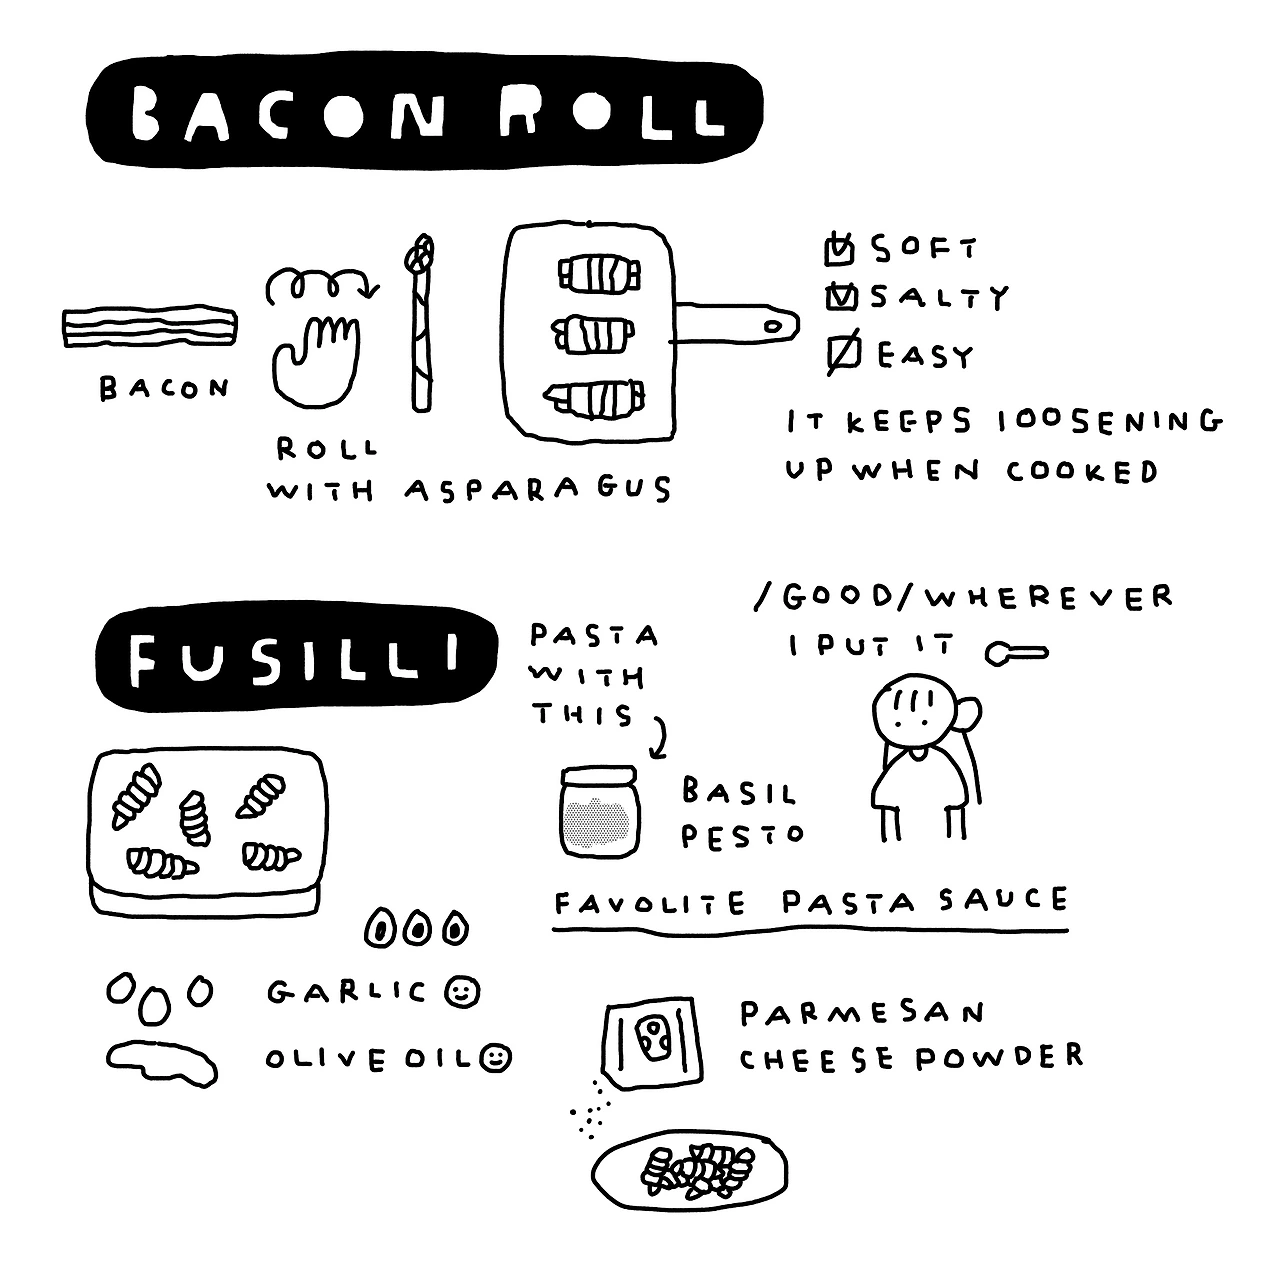 BACON ROLL
BACON
ROLL
WITH ASPARAGUS
SOFT
SALTY
EASY
IT KEEPS LOOSENING
UP WHEN COOKED
FUSILLI
PASTA
WITH
THIS
BASIL
PESTO
/GOOD/WHEREVER
I PUT IT
FAVOLITE PASTA SAUCE
GARLIC
OLIVE OIL
PARMESAN
CHEESE POWDER